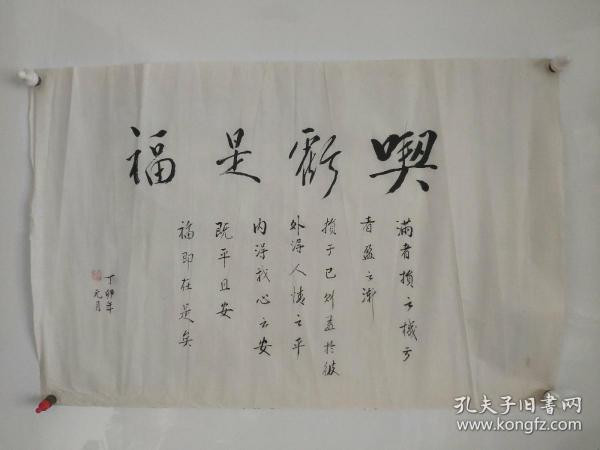 喫虧是福
滿者損之機亏
者盈之漸
損于己则益於彼
外得人情之平
内得我心之安
既平且安
福即在是矣
丁卯年
元月
孔夫子旧書网
www.kongfz.com